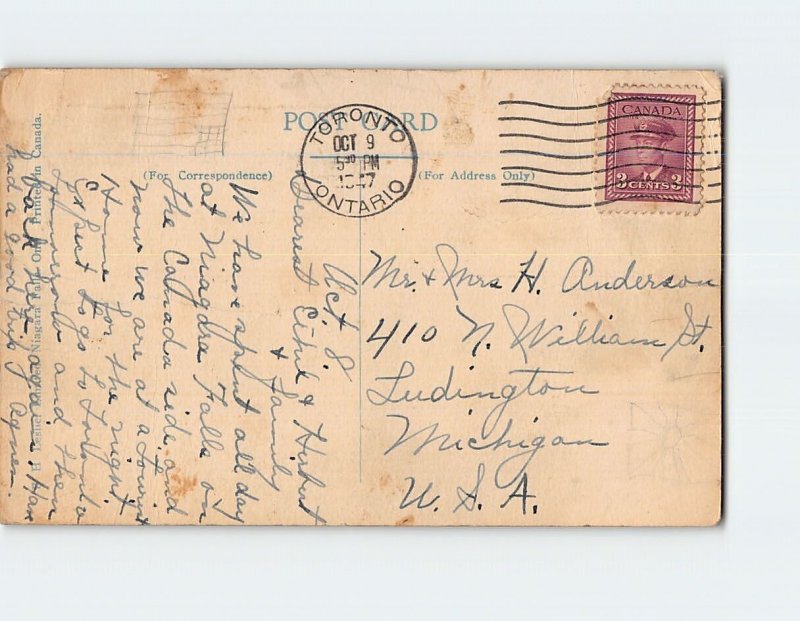 POST CARD
(For Correspondence)
(For Address Only)
TORONTO
OCT 9
5 30 PM
1947
ONTARIO
CANADA
3 CENTS 3
Oct. 8
Dearest Ethel & Herbert
& family
We have spent all day
at Niagara Falls on
the Canada side and
now we are at a tourist
Home for the night
Expect to go to
tomorrow and then
back here again. Have
had a good trip Agnes.
Niagara Falls, Ont. Printed in Canada.
Mr. & Mrs H. Anderson
410 N. William St.
Ludington
Michigan
U. S. A.